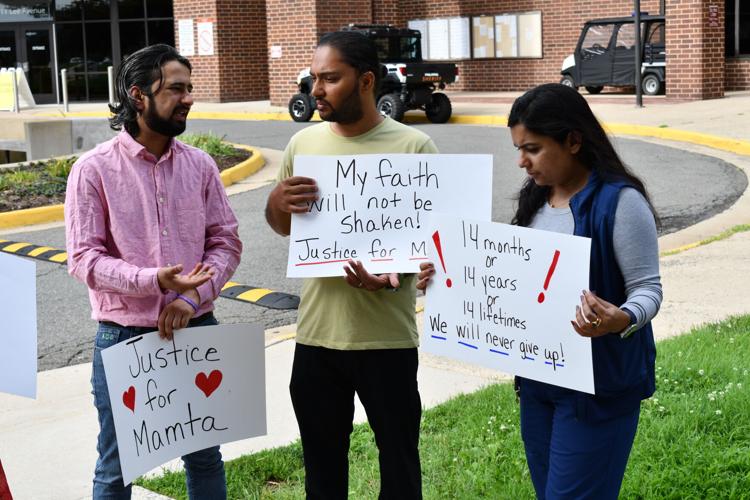 Lee Avenue
SHERIFF
My faith
will not be
shaken!
Justice for M
14 months
or
14 years
or
14 lifetimes
We will never give up!
!
!
Justice
for
Mamta